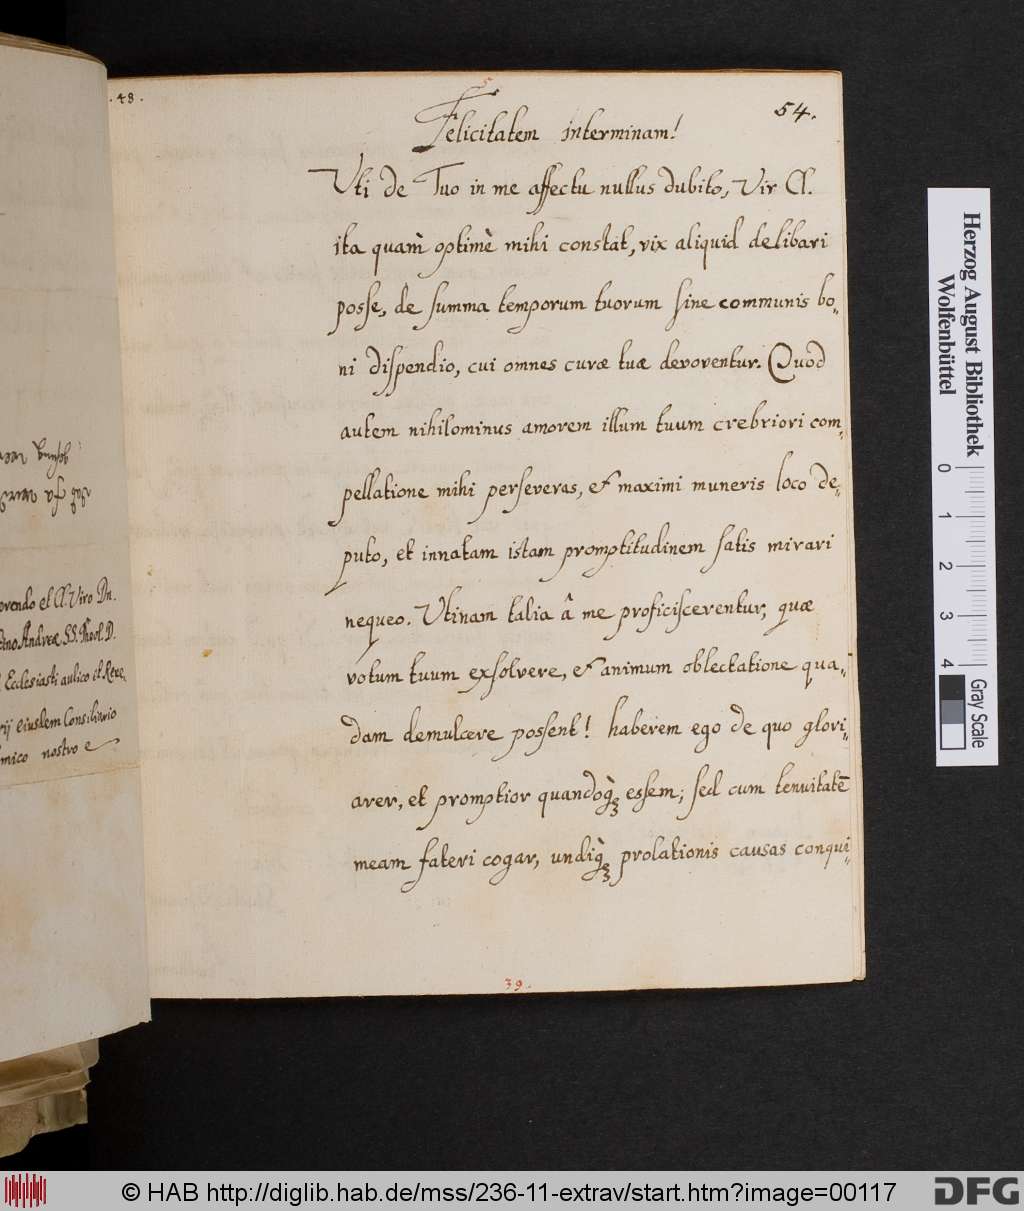 .48.
5
54.
Felicitatem interminam!
Uti de Tuo in me affectu nullus dubito, Vir Cl.
ita quam̀ optimè mihi constat, vix aliquid delibari
posse, de summa temporum tuorum sine communis bo„
ni dispendio, cui omnes curæ tuæ devoventur. Quod
autem nihilominus amorem illum tuum crebriori com„
pellatione mihi perseveras, & maximi muneris loco de„
puto, et innatam istam promptitudinem satis mirari
nequeo. Utinam talia â me proficiscerentur, quæ
votum tuum exsolvere, & animum oblectatione qua„
dam demulcere possent! haberem ego de quo glori„
arer, et promptior quandoq̀ꝫ essem; sed cum tenuitatē
meam fateri cogar, undiq̀ꝫ prolationis causas conqui„
39.
orendo et Cl. Viro Dn.
tino Andreæ SS. Theol. D.
Ecclesiasti aulico et Reve„
rij eiusdem Consiliario
mico nostro e
Herzog August Bibliothek
Wolfenbüttel
0 1 2 3 4
Gray Scale
© HAB http://diglib.hab.de/mss/236-11-extrav/start.htm?image=00117
DFG